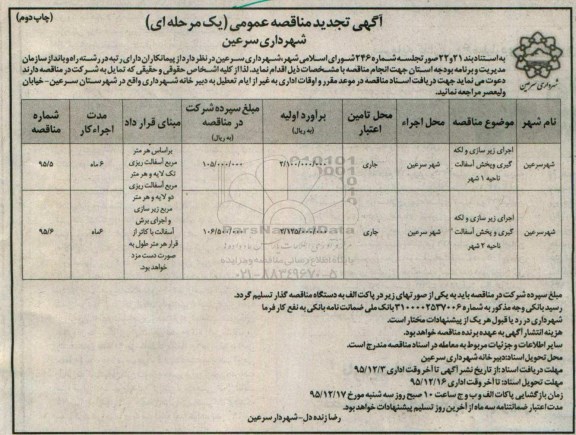 آگهی تجدید مناقصه عمومی (یک مرحله ای)
(چاپ دوم)
شهرداری سرعین
شهرداری سرعین
به استناد بند ۲۱ و ۲۲ صورتجلسه شماره ۲۴۶ شورای اسلامی شهر، شهرداری سرعین در نظر دارد از پیمانکاران دارای رتبه در رشته راه و باند از سازمان
مدیریت و برنامه بودجه استان جهت انجام مناقصه با مشخصات ذیل اقدام نماید. لذا از کلیه اشخاص حقوقی و حقیقی که تمایل به شرکت در مناقصه دارند
دعوت می نماید جهت دریافت اسناد مناقصه در موعد مقرر و اوقات اداری به غیر از ایام تعطیل به دبیر خانه شهرداری واقع در شهرستان سرعین - خیابان
ولیعصر مراجعه نمائید.
نام شهر | موضوع مناقصه | محل اجراء | محل تامین اعتبار | برآورد اولیه (به ریال) | مبلغ سپرده شرکت در مناقصه (به ریال) | مبنای قرار داد | مدت اجراء کار | شماره مناقصه
شهر سرعین | اجرای زیر سازی و لکه گیری و پخش آسفالت ناحیه ۱ شهر | شهر سرعین | جاری | ۲/۱۰۰/۰۰۰/۰۰۰ | ۱۰۵/۰۰۰/۰۰۰ | براساس هر متر مربع آسفالت ریزی تک لایه و هر متر مربع آسفالت ریزی دو لایه و هر متر مربع زیر سازی و اجرای برش آسفالت با کاتر از قرار هر متر طول به صورت دست مزد خواهد بود. | ۶ ماه | ۹۵/۵
شهر سرعین | اجرای زیر سازی و لکه گیری و پخش آسفالت ناحیه ۲ شهر | شهر سرعین | جاری | ۱۰۶/۵۰۰/۰۰۰ | ۶ ماه | ۹۵/۶
ParsNamadData
۰۲۱-۸۸۳۴۹۶۷۰-۵
مبلغ سپرده شرکت در مناقصه باید به یکی از صورتهای زیر در پاکت الف به دستگاه مناقصه گذار تسلیم گردد.
رسید بانکی وجه مذکور به شماره ۳۱۰۰۰۰۲۵۳۷۰۰۶ بانک ملی ضمانت نامه بانکی به نفع کار فرما
شهرداری در رد یا قبول هر یک از پیشنهادات مختار است.
هزینه انتشار آگهی به عهده برنده مناقصه خواهد بود.
سایر اطلاعات و جزئیات مربوط به معامله در اسناد مناقصه مندرج است.
محل تحویل اسناد: دبیر خانه شهرداری سرعین
مهلت دریافت اسناد: از تاریخ نشر آگهی تا آخر وقت اداری ۹۵/۱۲/۳
مهلت تحویل اسناد: تا آخر وقت اداری ۹۵/۱۲/۱۶
زمان بازگشایی پاکات الف و ب و ج ساعت ۱۰ صبح روز سه شنبه مورخ ۹۵/۱۲/۱۷
مدت اعتبار ضمانتنامه سه ماه از آخرین روز تسلیم پیشنهادات خواهد بود.
رضا زنده دل - شهردار سرعین